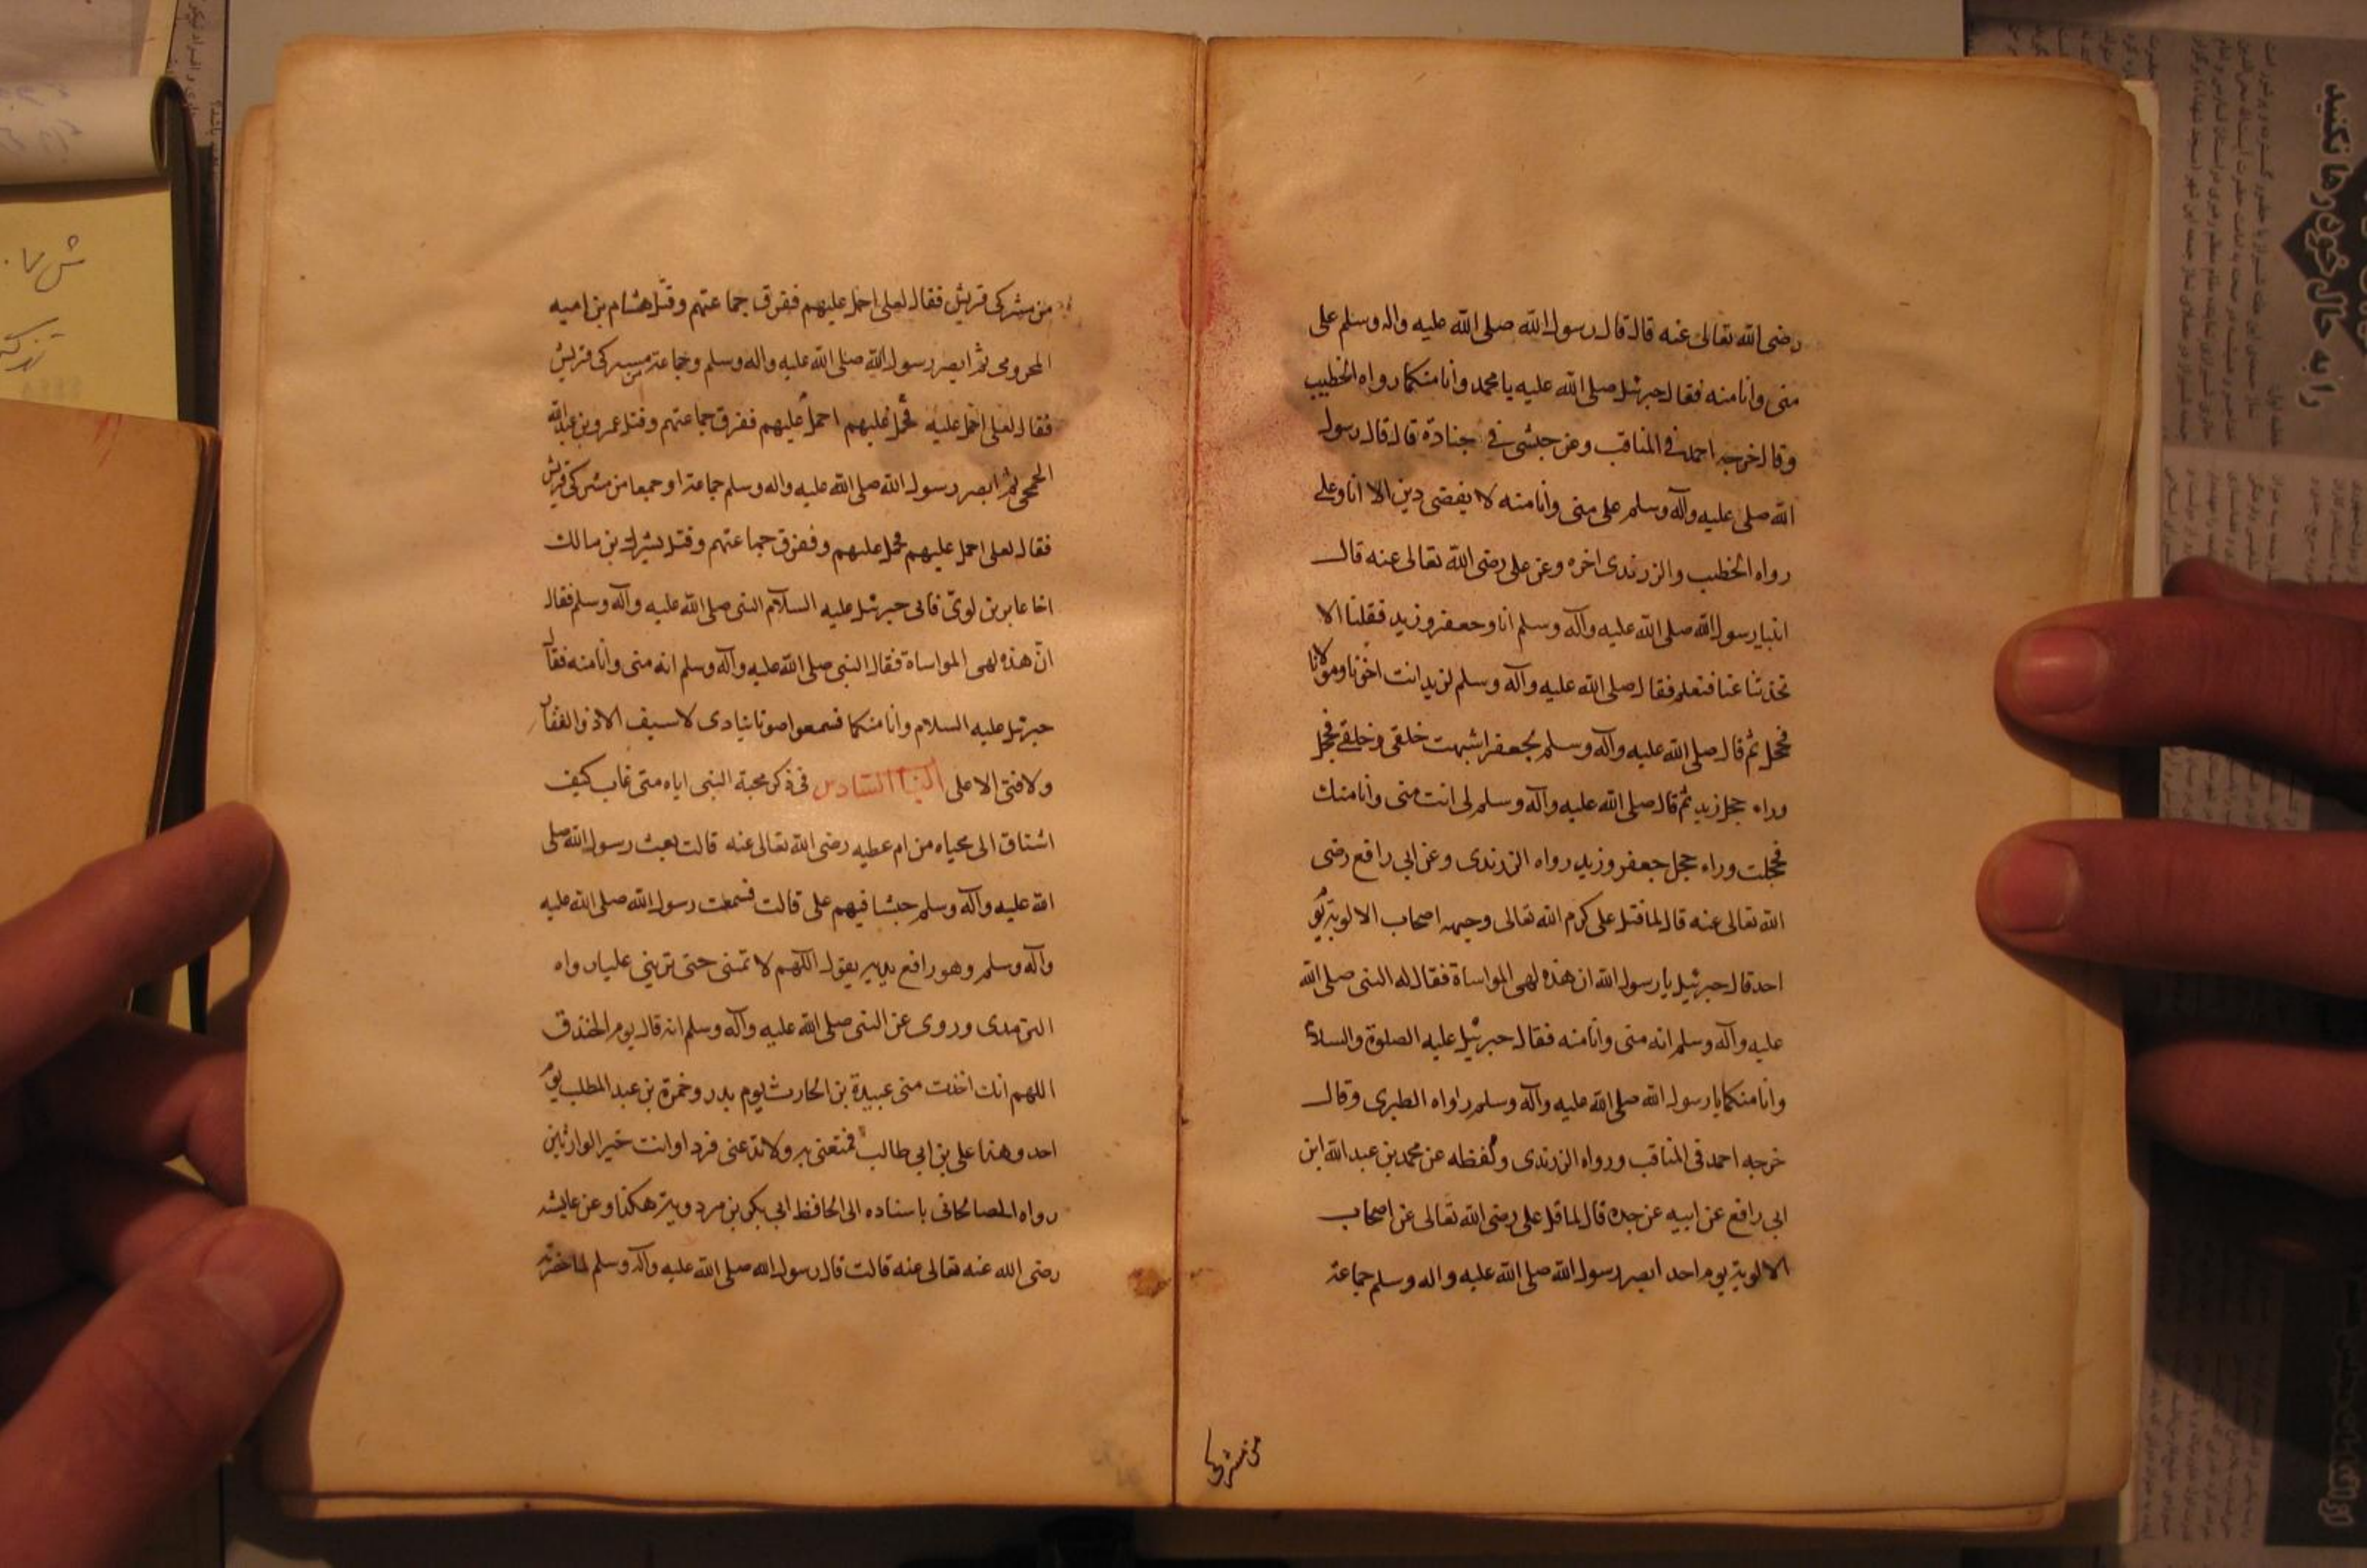 رضى الله تعالى عنه قال قال رسول الله صلى الله عليه واله وسلم على
منى وانا منه فقال جبرئيل صلى الله عليه يا محمد وانا منكما رواه الخطيب
وقال خرجه احمد فى المناقب وعن حبشى فى جنادة قال قال رسول
الله صلى عليه وآله وسلم على منى وانا منه لا يقضى دين الا انا وعلى
رواه الخطيب والزرندى اخره وعن على رضى الله تعالى عنه قال
اتينا رسول الله صلى الله عليه وآله وسلم انا وجعفر وزيد فقلنا الا
تحدثنا عنا فنعلم فقال صلى الله عليه وآله وسلم لزيد انت اخونا ومولانا
فحجل ثم قال صلى الله عليه وآله وسلم لجعفر اشبهت خلقى وخلقى فحجل
وراء حجل زيد ثم قال صلى الله عليه وآله وسلم لى انت منى وانا منك
فحجلت وراء حجل جعفر وزيد رواه الزرندى وعن ابى رافع رضى
الله تعالى عنه قال لما قتل على كرم الله تعالى وجهه اصحاب الالوية يوم
احد قال جبرئيل يا رسول الله ان هذه لهى المواساة فقال له النبى صلى الله
عليه وآله وسلم انه منى وانا منه فقال جبرئيل عليه الصلوة والسلام
وانا منكما يا رسول الله صلى الله عليه وآله وسلم رواه الطبرى وقال
خرجه احمد فى المناقب ورواه الزرندى ولفظه عن محمد بن عبد الله ابن
ابى رافع عن ابيه عن جده قال لما قتل على رضى الله تعالى عن اصحاب
الالوية يوم احد ابصر رسول الله صلى الله عليه واله وسلم جماعة
من مشركى
من مشركى قريش فقال لعلى احمل عليهم ففرق جماعتهم وقتل هشام بن اميه
المخرومى ثم ابصر رسول الله صلى الله عليه واله وسلم وجماعة من مشركى قريش
فقال لعلى احمل عليه فحمل عليهم احمل عليهم ففرق جماعتهم وقتل عمرو بن عبد الله
الجمحى ثم ابصر رسول الله صلى الله عليه واله وسلم جماعة او جمعا من مشركى قريش
فقال لعلى احمل عليهم فحمل عليهم وففرق جماعتهم وقتل بشر بن مالك
اخا عامر بن لوى فاتى جبرئيل عليه السلام النبى صلى الله عليه وآله وسلم فقال
ان هذه لهى المواساة فقال النبى صلى الله عليه وآله وسلم انه منى وانا منه فقال
جبرئيل عليه السلام وانا منكما فسمعوا صوتا ينادى لا سيف الا ذو الفقار
ولا فتى الا على الباب السادس فى ذكر محبة النبى اياه متى غاب كيف
اشتاق الى محياه من ام عطيه رضى الله تعالى عنه قالت بعث رسول الله صلى
الله عليه وآله وسلم جيشا فيهم على قالت فسمعت رسول الله صلى الله عليه
وآله وسلم وهو رافع يديه يقول اللهم لا تمتنى حتى ترينى عليا رواه
الترمدى وروى عن النبى صلى الله عليه وآله وسلم انه قال يوم الخندق
اللهم انك اخذت منى عبيدة بن الحارث يوم بدر وحمزة بن عبد المطلب يوم
احد وهذا على بن ابى طالب فمتعنى به ولا تدعنى فردا وانت خير الوارثين
رواه الصالحانى باسناده الى الحافظ ابى بكر بن مردويه هكذا وعن عايشه
رضى الله عنه تعالى عنه قالت قال رسول الله صلى الله عليه وآله وسلم لما حضرته
را به حال خود رها نکنید